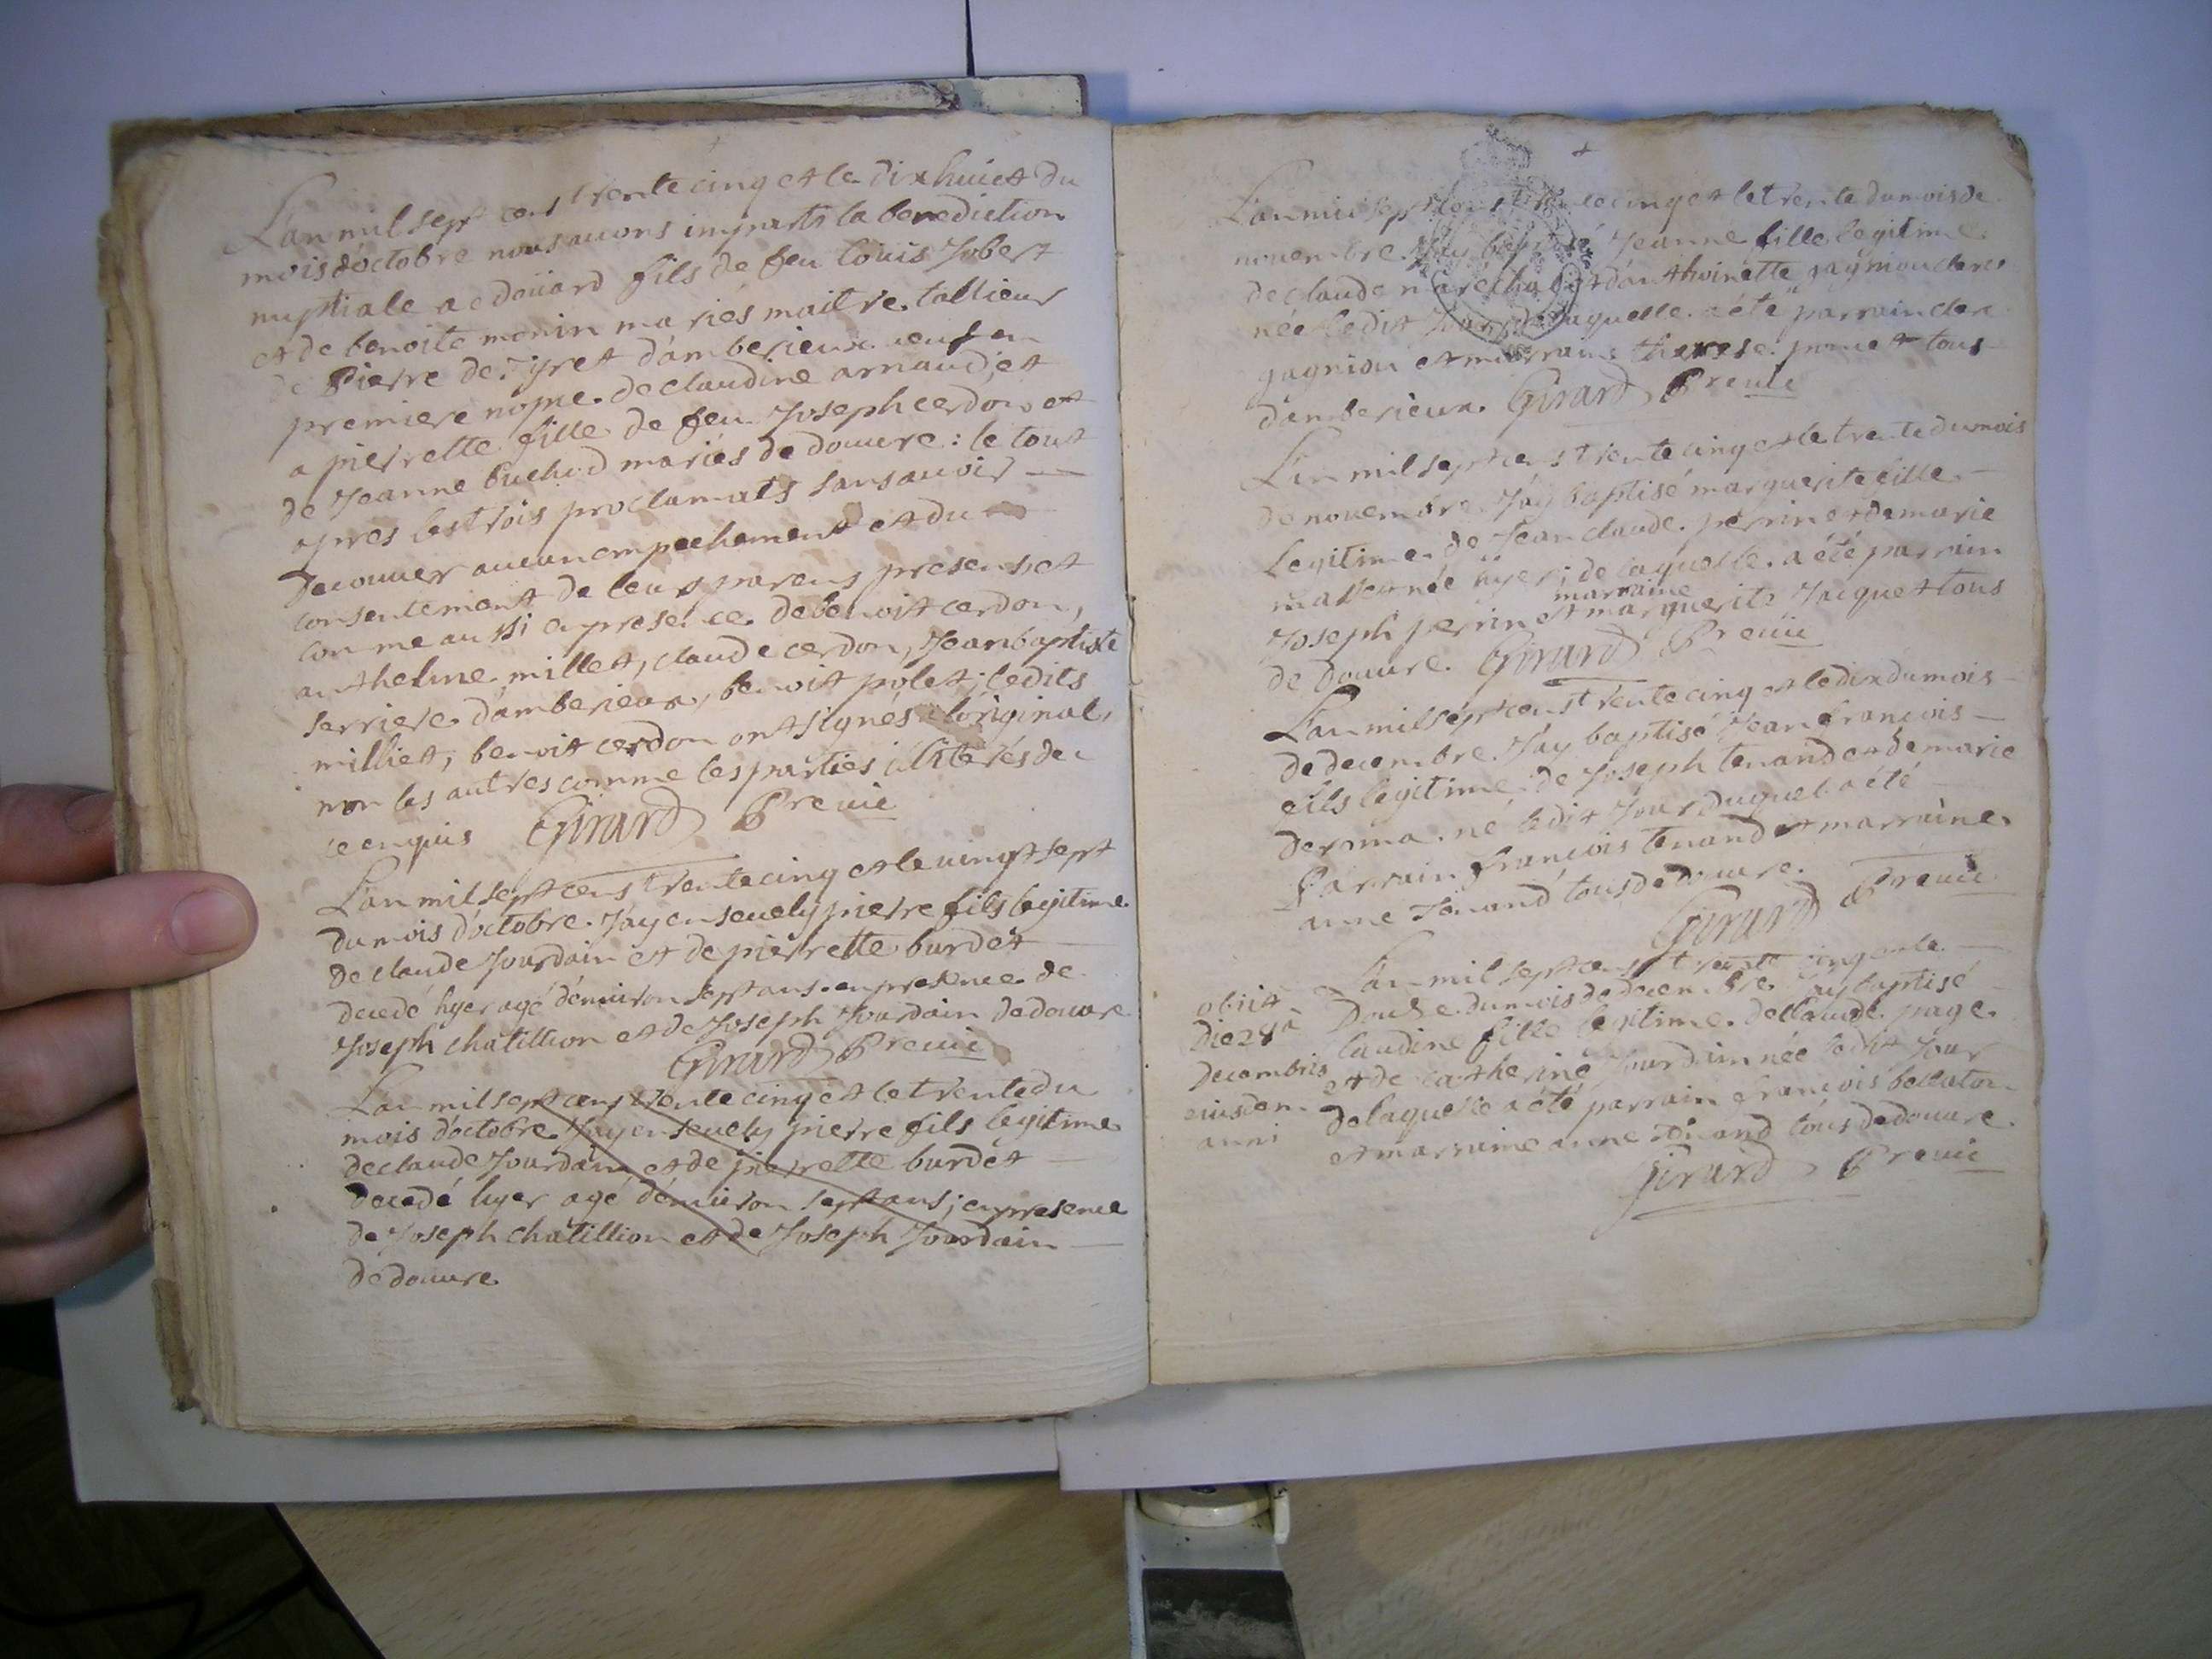 L'an mil sept cens trente cinq et le dixhuict du
mois d'octobre nous auons imparti la benediction
nuptiale a edoüard fils de feu loüis Jobert
et de benoite monin mariés maitre tallieur
de Pierre de d'amberieux ueuf en
premiere nopce de claudine arnaud, et
a pierrette fille de feu Joseph cerdon et
de Jeanne buchod mariés de douure : le tout
apres les trois proclamats sans auoir
decouuer aucun empechement et du
consentement de leurs parens presens, et
comme aussi en presence de benoit cerdon,
anthelme milliet, claude cerdon, Jean baptiste
serriere d'amberieux, benoit polet; ledits
milliet, benoit cerdon ont signés a l'original,
non les autres comme les parties illiterés de
ce enquis Girard Preuie
L'an mil sept cens trente cinq et le uingt sept
du mois d'octobre J'ay enseuely pierre fils legitime
de claude Jourdain et de pierrette burdet
decedé hyer agé d'enuiron sept ans en presence de
Joseph chatillion et de Joseph Jourdain de douure
Girard Preuie
L'an mil sept cens trente cinq et le trente du
mois d'octobre J'ay enseuely pierre fils legitime
de claude Jourdain et de pierrette burdet
decedé hyer agé d'enuiron sept ans; en presence
de Joseph chatillion et de Joseph Jourdain
de douure
L'an mil sept cens trente cinq et le trente du mois de
nouembre J'ay baptisé Jeanne fille legitime
de claude marechal et d'anthoinette gagniou clere
née ledit Jour de laquelle a été parrain clere
gagniou et marraine therese tous
d'amberieux. Girard Preuie
L'an mil sept cens trente cinq et le trente du mois
de nouembre J'ay baptisé marguerite fille
legitime de Jean claude perrin et de marie
née hyer; de laquelle a été parrain
marraine
Joseph perrin et marguerite Jacquet tous
de douure. Girard Preuie
L'an mil sept cens trente cinq et le dix du mois
de decembre J'ay baptisé Jean françois
fils legitime de Joseph tenand et de marie
deroma né ledit Jour duquel a été
Parrain françois tenand et marraine
anne tenand tous de douure.
Girard Preuie
L'an mil sept cens trente cinq et le
douse du mois de decembre J'ay baptisé
claudine fille legitime de claude page
et de catherine Jourdain née ledit Jour
de laquelle a été parrain francois bellaton
et marraine anne tous de douure.
Girard Preuie
obiit
Die 28a
Decembris
eiusdem
anni